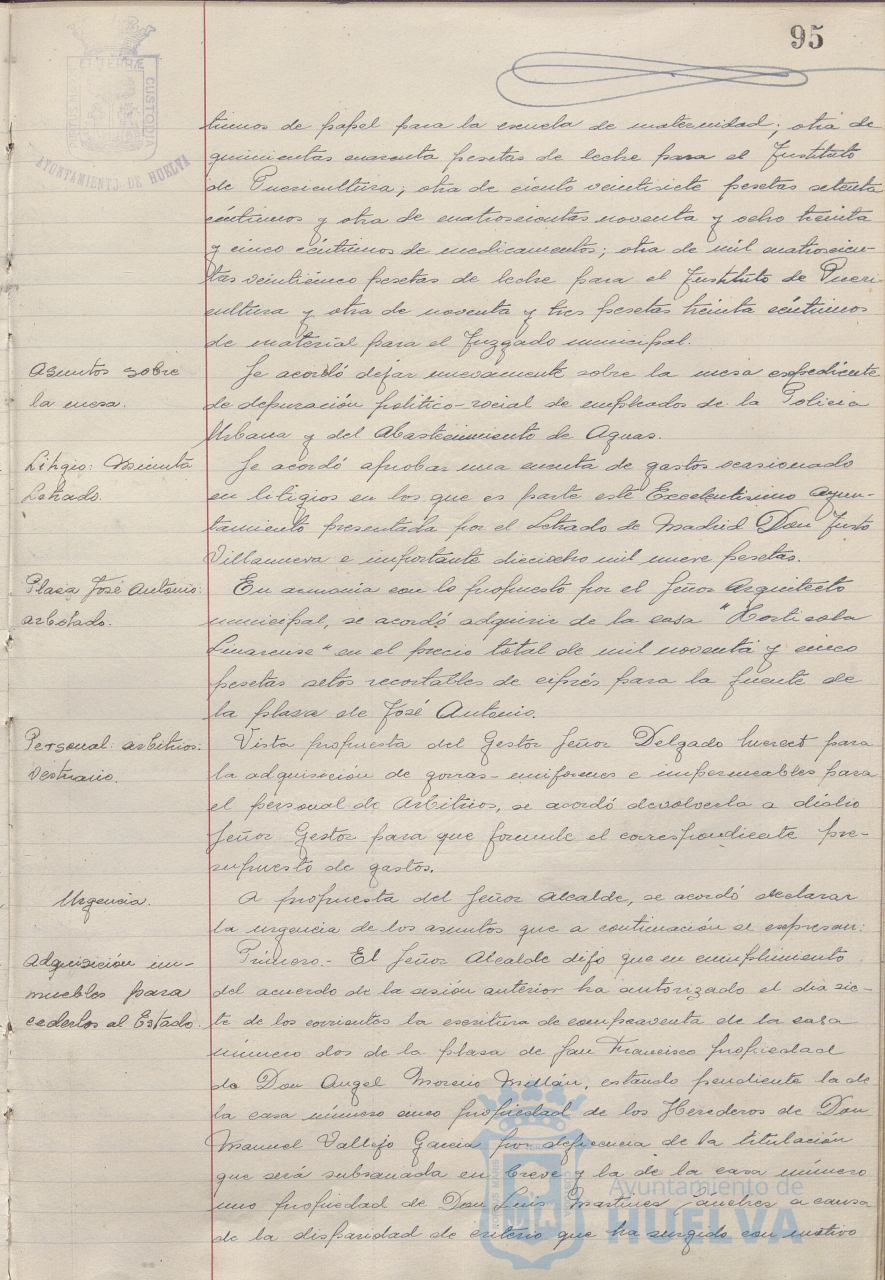 95
timos de papel para la escuela de maternidad; otra de
quinientas cuarenta pesetas de leche para el Instituto
de Puericultura; otra de ciento veintisiete pesetas setenta
céntimos y otra de cuatrocientas noventa y ocho treinta
y cinco céntimos de medicamentos; otra de mil cuatrocien-
tas veinticinco pesetas de leche para el Instituto de Pueri
cultura y otra de noventa y tres pesetas treinta céntimos
de material para el Juzgado municipal.
Asuntos sobre
la mesa.
Se acordó dejar nuevamente sobre la mesa expediente
de depuración político-social de empleados de la Policia
Urbana y del Abastecimiento de Aguas.
Litigio: Minuta
Letrado.
Se acordó aprobar una cuenta de gastos ocasionado
en litigios en los que es parte este Excelentísimo Ayun-
tamiento presentada por el Letrado de Madrid Don Justo
Villanueva e importante dieciocho mil nueve pesetas.
Plaza José Antonio:
arbolado.
En armonia con lo propuesto por el Señor Arquitecto
municipal, se acordó adquirir de la casa "Horticola
Linarense" en el precio total de mil noventa y cinco
pesetas setos recortables de ciprés para la fuente de
la plaza de José Antonio.
Personal: arbitrios:
vestuario.
Vista propuesta del Gestor Señor Delgado para
la adquisición de gorras-uniformes e impermeables para
el personal de Arbitrios, se acordó devolverla a dicho
Señor Gestor para que formule el correspondiente pre-
supuesto de gastos.
Urgencia.
A propuesta del Señor Alcalde, se acordó declarar
la urgencia de los asuntos que a continuación se expresan:
Adquisición in-
muebles para
cederlos al Estado.
Primero.- El Señor Alcalde dijo que en cumplimiento
del acuerdo de la sesión anterior ha autorizado el dia sie-
te de los corrientes la escritura de compraventa de la casa
número dos de la plaza de San Francisco propiedad
de Don Angel Moreno Millán, estando pendiente la de
la casa número cinco propiedad de los Herederos de Don
Manuel Vallejo Garcia por deficiencia de la titulación
que será subsanada en breve y la de la casa número
uno propiedad de Don Luis Martinez Sánchez a causa
de la disparidad de criterio que ha surgido con motivo
AYUNTAMIENTO DE HUELVA
CUSTODIA
Ayuntamiento de
HUELVA